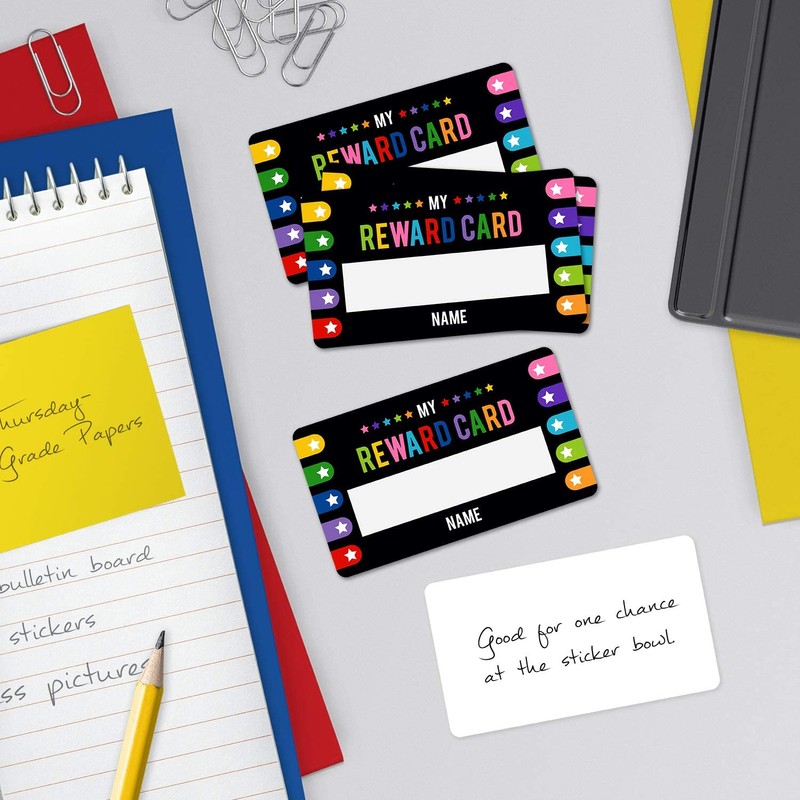 MY
REWARD CARD
MY
REWARD CARD
NAME
MY
REWARD CARD
NAME
Good for one chance
at the sticker bowl
Thursday-
Grade Papers
bulletin board
stickers
pictures